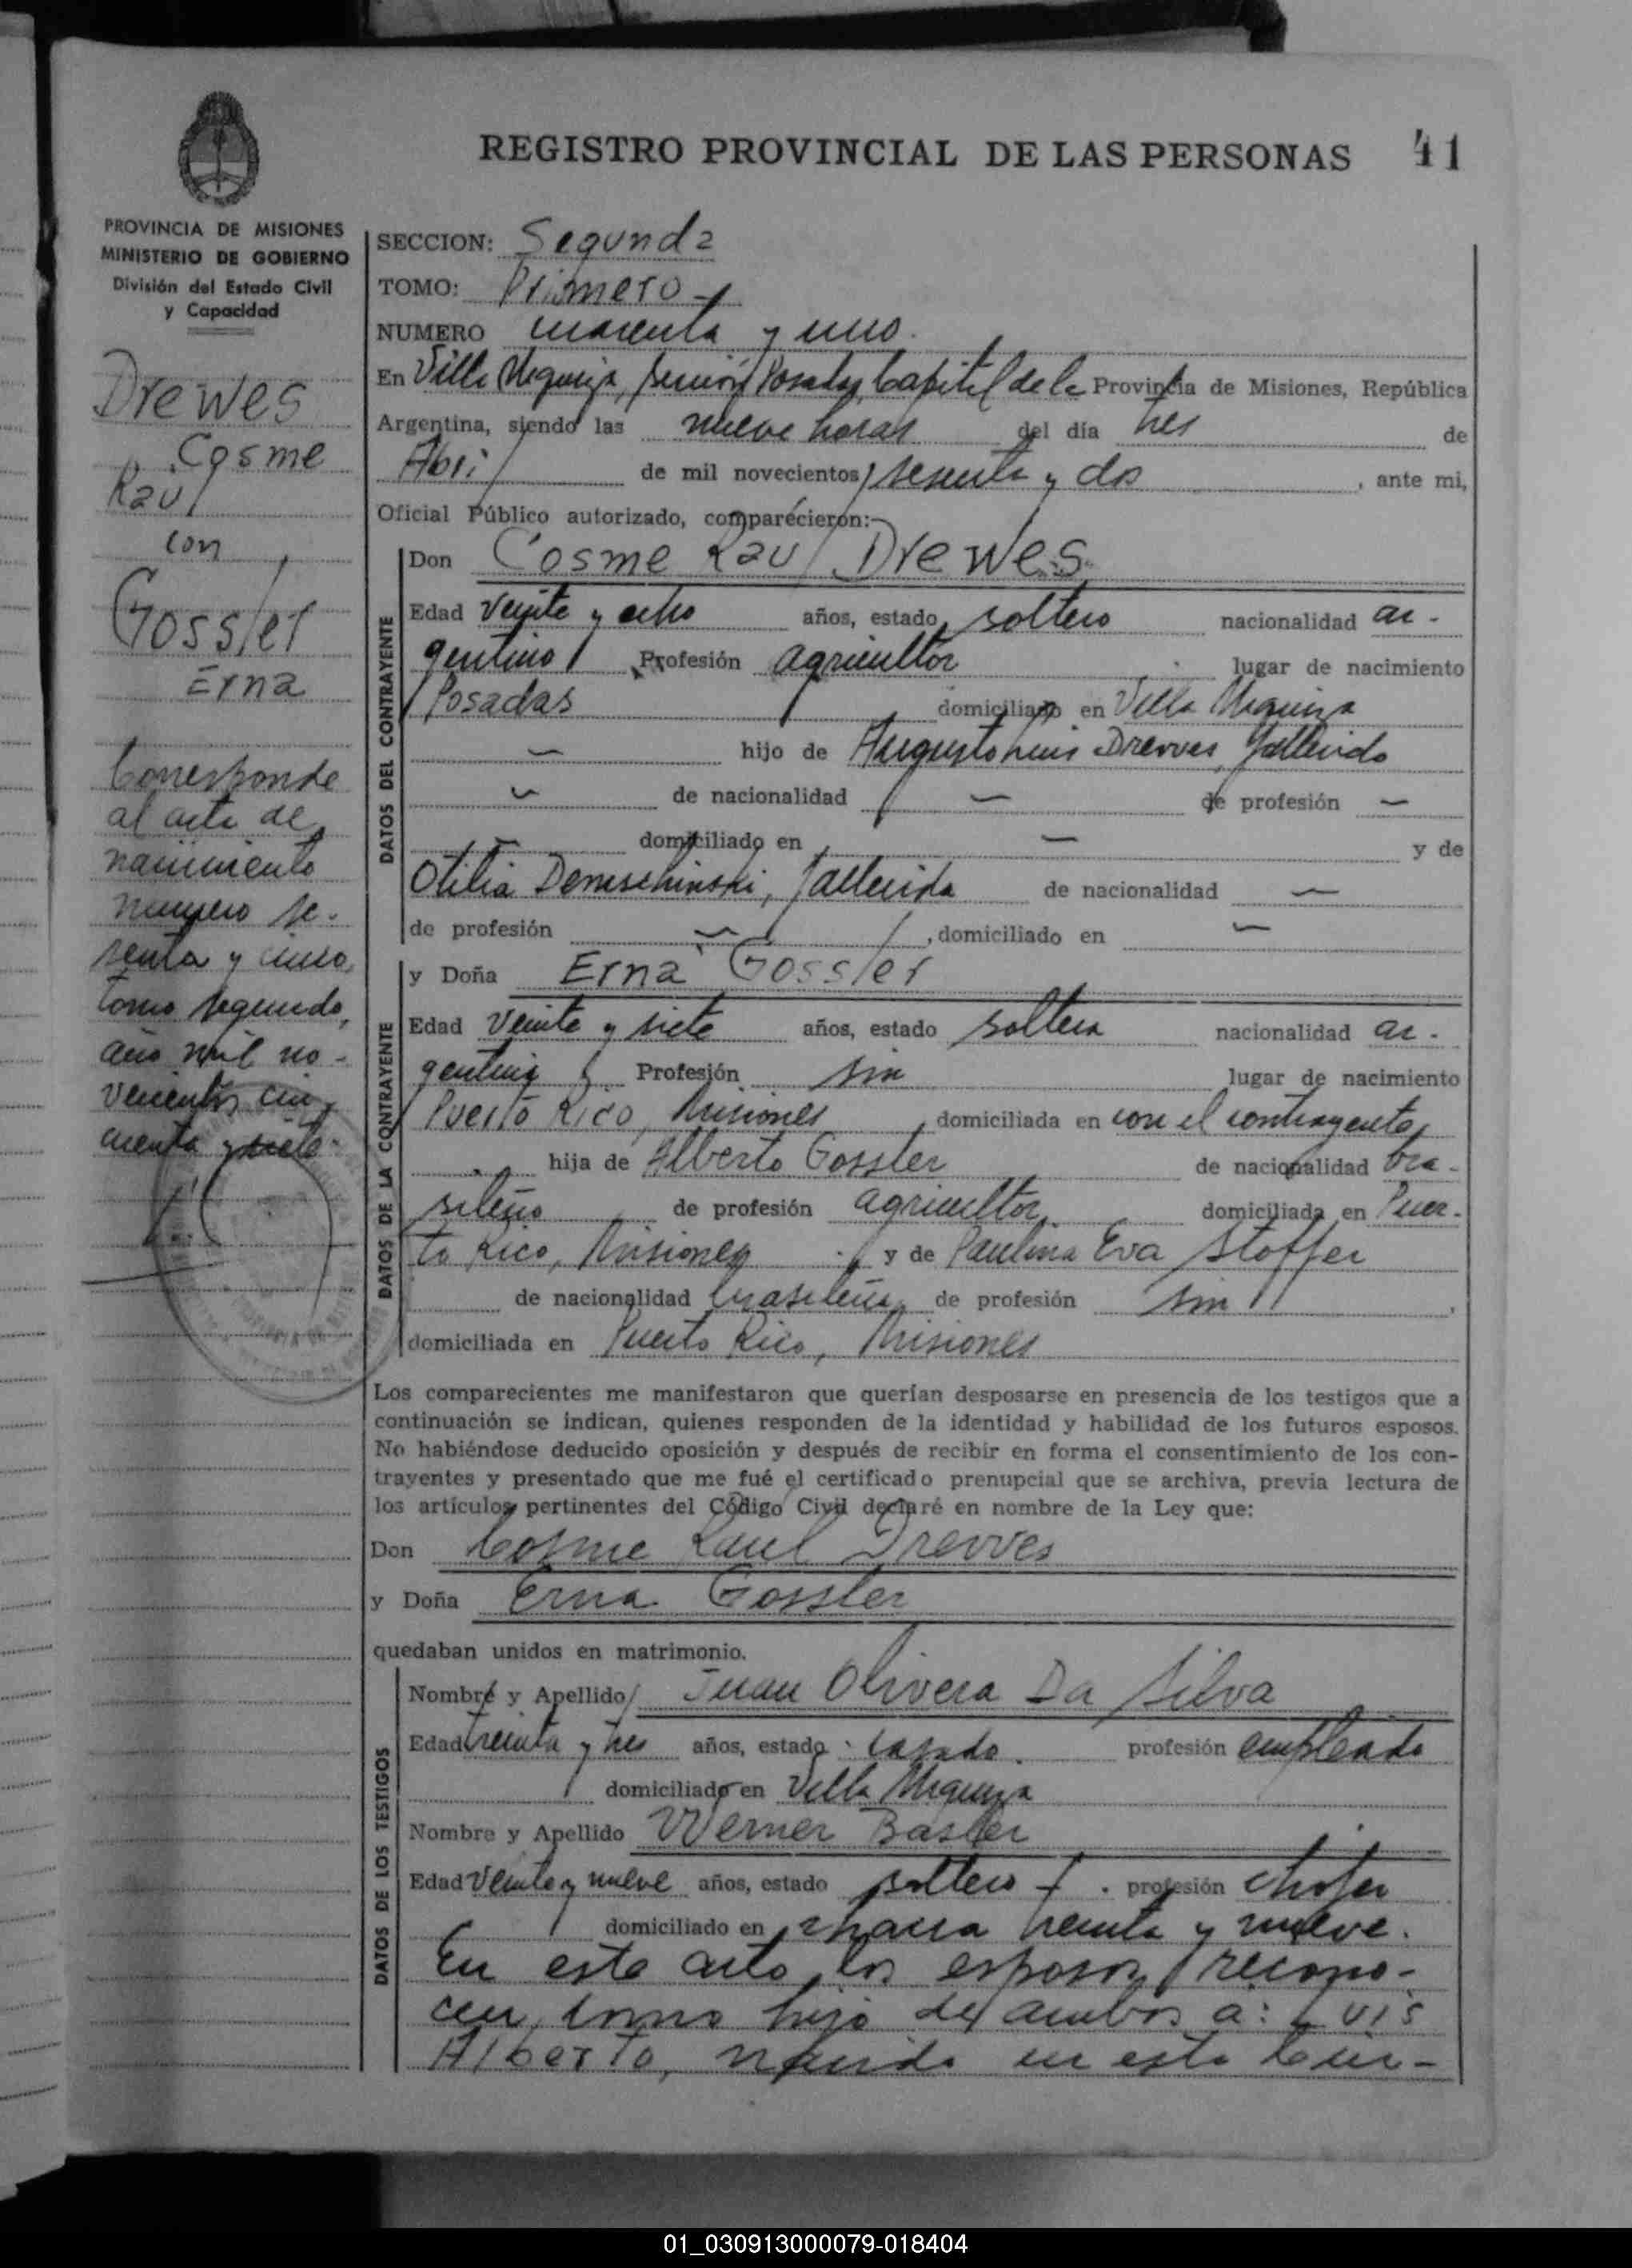 REGISTRO PROVINCIAL DE LAS PERSONAS 41
PROVINCIA DE MISIONES
MINISTERIO DE GOBIERNO
División del Estado Civil
y Capacidad
Drewes
Cosme
Raul
con
Gossler
Erna
Corresponde
al acta de
nacimiento
numero se-
senta y cinco,
tomo segundo,
año mil no-
vecientos cin-
cuenta y siete.
SECCION: Segunda
TOMO: Primero
NUMERO cuarenta y uno.
En Villa Urquiza, Posadas, Capital de la Provincia de Misiones, República
Argentina, siendo las nueve horas del día tres de
Abril de mil novecientos sesenta y dos, ante mi,
Oficial Público autorizado, comparecieron:
DATOS DEL CONTRAYENTE
Don Cosme Raul Drewes
Edad veinte y ocho años, estado soltero nacionalidad ar-
gentino Profesión agricultor lugar de nacimiento
Posadas domiciliado en Villa Urquiza
— hijo de Augusto Luis Drewes, fallecido
— de nacionalidad — de profesión —
— domiciliado en — y de
Otilia Demschinski, fallecida de nacionalidad —
de profesión —, domiciliado en —
DATOS DE LA CONTRAYENTE
y Doña Erna Gossler
Edad veinte y siete años, estado soltera nacionalidad ar-
gentina Profesión sin lugar de nacimiento
Puerto Rico, Misiones, domiciliada en con el contrayente,
hija de Alberto Gossler de nacionalidad bra-
sileño de profesión agricultor domiciliada en Puer-
to Rico, Misiones y de Paulina Eva Stoffer
de nacionalidad brasileña, de profesión sin,
domiciliada en Puerto Rico, Misiones
Los comparecientes me manifestaron que querían desposarse en presencia de los testigos que a
continuación se indican, quienes responden de la identidad y habilidad de los futuros esposos.
No habiéndose deducido oposición y después de recibir en forma el consentimiento de los con-
trayentes y presentado que me fué el certificado prenupcial que se archiva, previa lectura de
los artículos pertinentes del Código Civil declaré en nombre de la Ley que:
Don Cosme Raul Drewes
y Doña Erna Gossler
quedaban unidos en matrimonio.
DATOS DE LOS TESTIGOS
Nombre y Apellido Juan Olivera Da Silva
Edad treinta y tres años, estado casado. profesión empleado
domiciliado en Villa Urquiza
Nombre y Apellido Werner Basler
Edad veinte y nueve años, estado soltero. profesión chofer
domiciliado en chacra treinta y nueve.
En este acto los esposos recono-
cen como hijo de ambos a: Luis
Alberto, nacido en esta Cir-
01_030913000079-018404